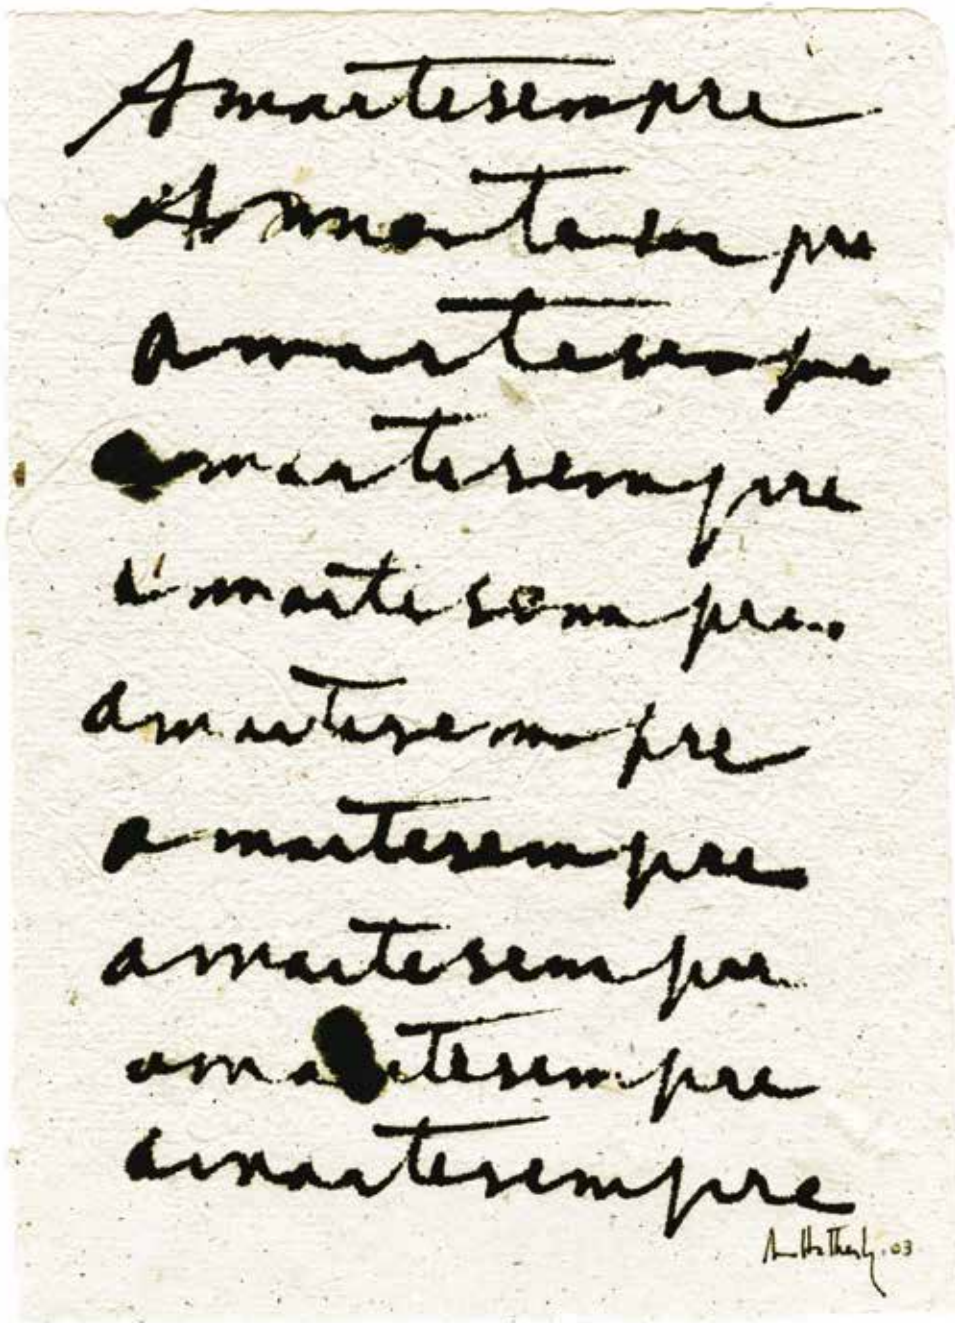 Amartesempre
Amartesempre
amartesempre
amartesempre
amartesempre..
amartesempre
amartesempre
amartesempre
amartesempre
amartesempre
Ana Hatherly. 03